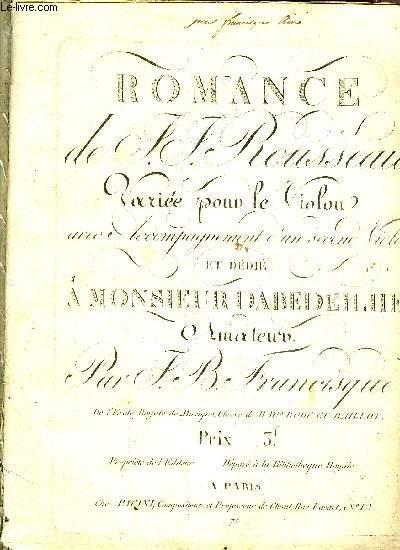 Le-livre.com
ROMANCE
de J. J. Rousseau
Variée pour le Violon
avec Accompagnement d'un second Violon
ET DÉDIÉ
À MONSIEUR DABEDEILHE
Amateur
Par J. B. Francisque
De l'Ecole Royale de Musique, Classe de M.M.rs RODE ET BAILLOT.
Prix 3f
Propriété de l'Editeur Déposé à la Bibliothèque Royale
A PARIS
Chez PACINI, Compositeur et Professeur de Chant, Rue Favart, No. 12